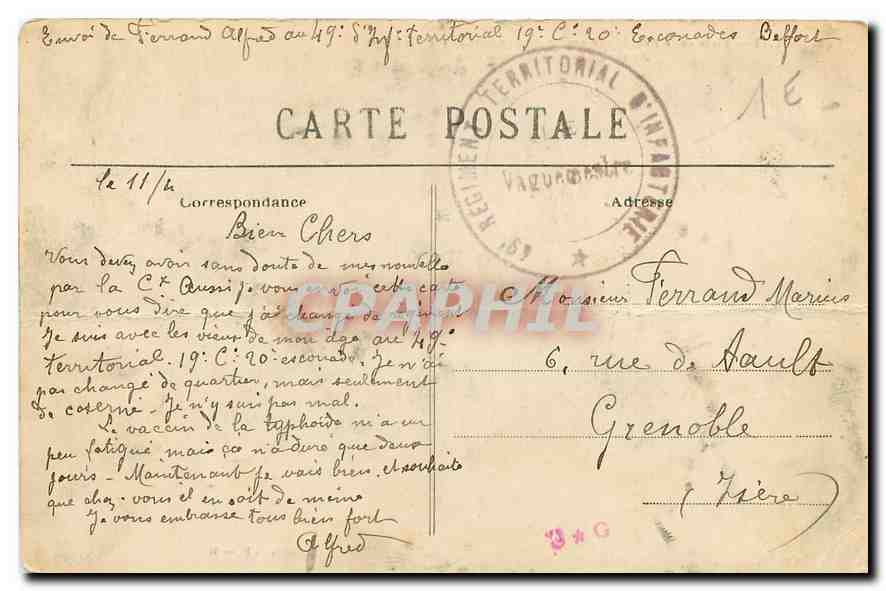 Envoi de Ferrand Alfred au 49e d'Inf. territorial 19e Cie 20e Escouades Belfort
CARTE POSTALE
49e REGIMENT TERRITORIAL D'INFANTERIE
Vaguemestre
1 E
le 11/4
Correspondance
Adresse
Bien Chers
Vous devez avoir sans doute de mes nouvelles
par la Cx Aussi je vous envoi cette carte
pour vous dire que j'ai changé de régiment
Je suis avec les vieux de mon âge au 49e
territorial. 19e Cie 20e escouade. Je n'ai
pas changé de quartier, mais seulement
de caserne - Je n'y suis pas mal.
Le vaccin de la typhoïde m'a un
peu fatigué, mais ça n'a duré que deux
jours - Maintenant je vais bien et souhaite
que chez-vous il en soit de même
Je vous embrasse tous bien fort
Alfred
Monsieur Ferrand Marius
6, rue de Sault
Grenoble
(Isère)
CPAPHIL
G